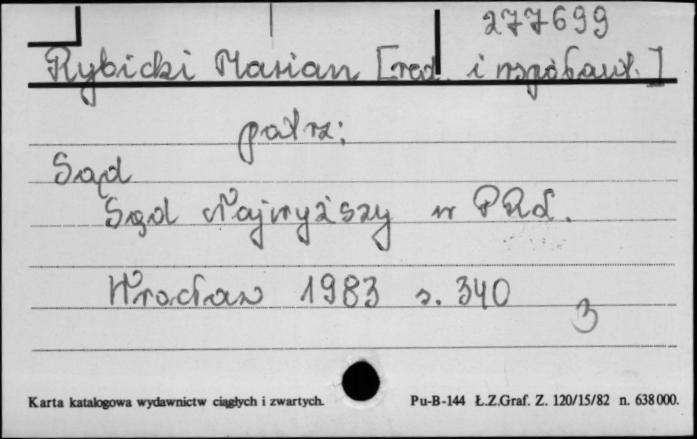 277699
Rybicki Marian [red. i współaut.]
patrz:
Sąd
Sąd Najwyższy w PRL.
Wrocław 1983 s. 340
3
Karta katalogowa wydawnictw ciągłych i zwartych. Pu-B-144 Ł.Z.Graf. Z. 120/15/82 n. 638000.